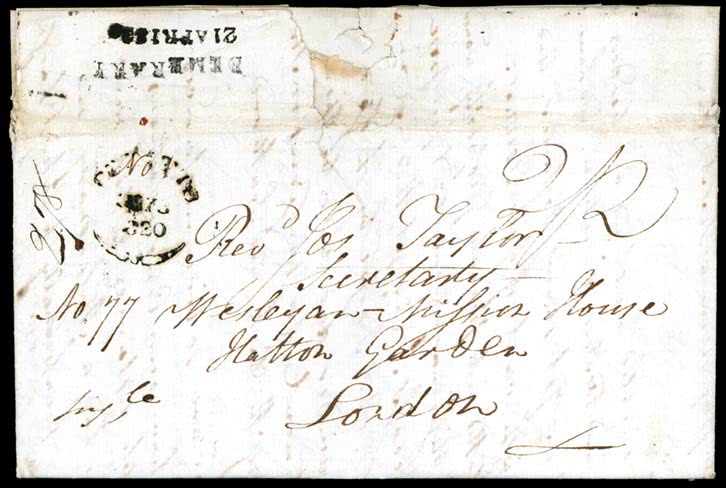 DEMERARY
21 APR 18
No
820
Revd Jos Taylor
Secretary
No. 77 Wesleyan Mission House
Hatton Garden
London